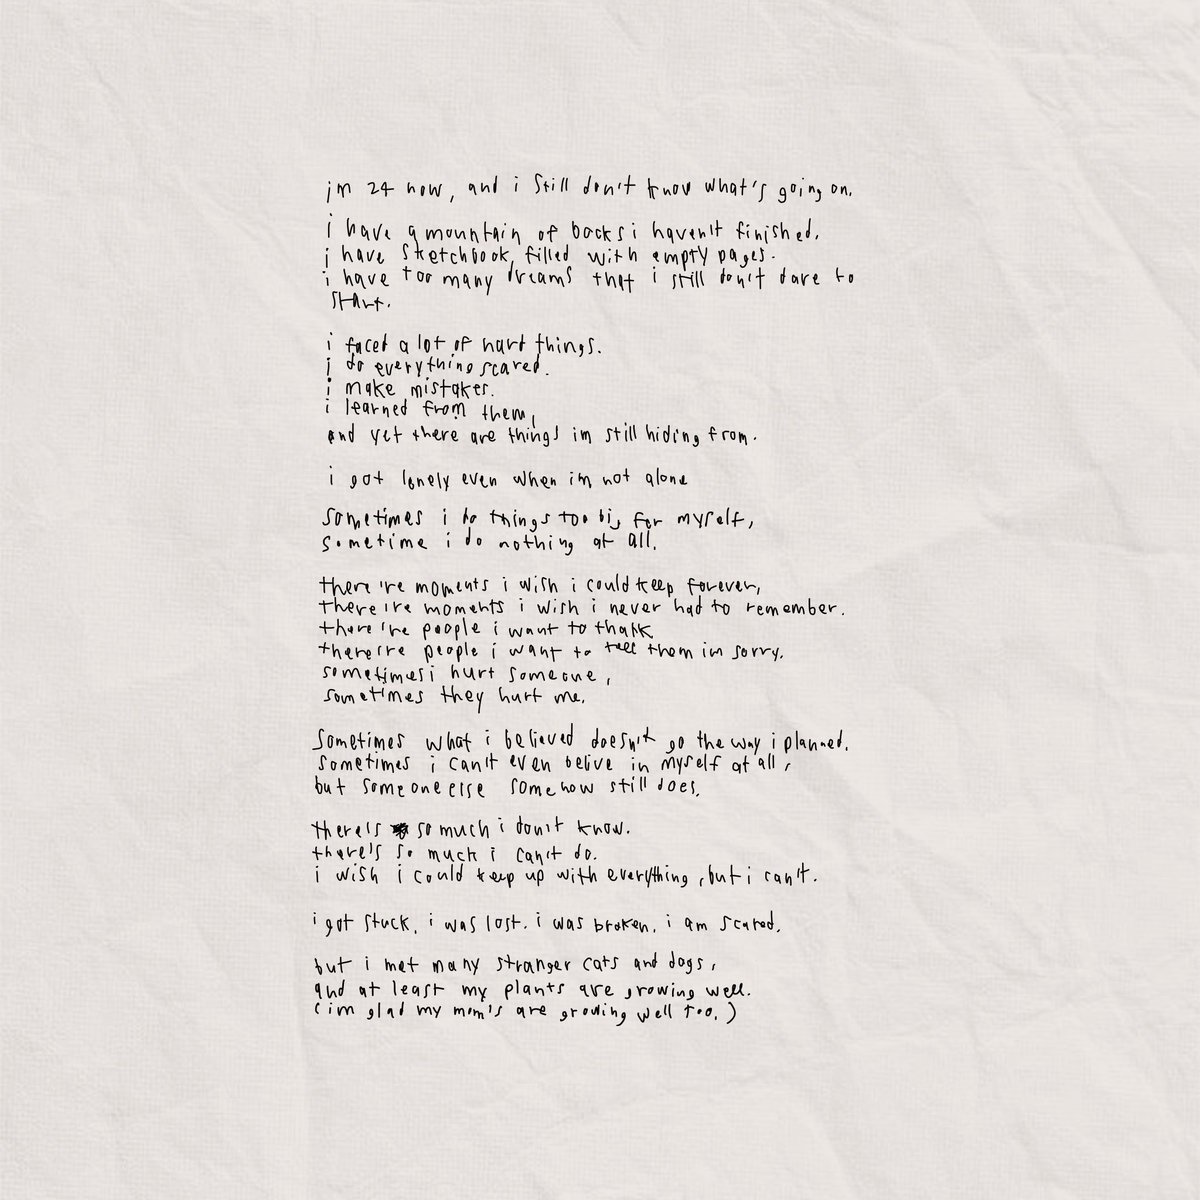 im 24 now, and i still don't know what's going on.
i have a mountain of books i haven't finished.
i have sketchbook filled with empty pages.
i have too many dreams that i still don't dare to
start.
i faced a lot of hard things.
i do everything scared.
i make mistakes.
i learned from them,
and yet there are things im still hiding from.
i got lonely even when im not alone
sometimes i do things too big for myself,
sometime i do nothing at all.
there're moments i wish i could keep forever,
there're moments i wish i never had to remember.
there're people i want to thank
there're people i want to tell them im sorry.
sometimes i hurt someone,
sometimes they hurt me.
sometimes what i believed doesn't go the way i planned.
sometimes i can't even belive in myself at all,
but someone else somehow still does.
there's so much i don't know.
there's so much i can't do.
i wish i could keep up with everything, but i can't.
i got stuck. i was lost. i was broken. i am scared.
but i met many stranger cats and dogs,
and at least my plants are growing well.
(im glad my mom's are growing well too.)